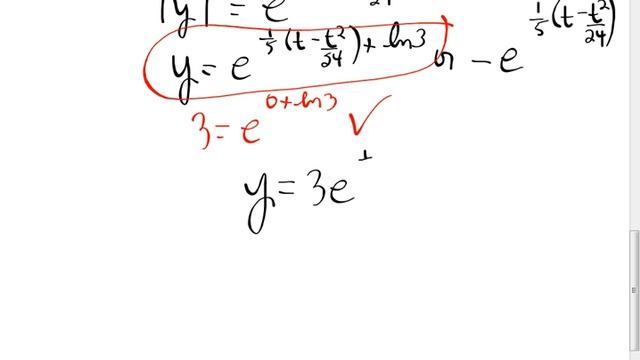 |y| = e
y = e^{\frac{1}{5}(t - \frac{t^2}{24}) + ln3} or - e^{\frac{1}{5}(t - \frac{t^2}{24})}
3 = e^{0 + ln3} ✓
y = 3e